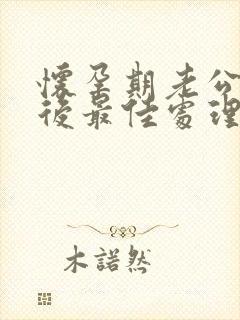 懷孕期老公
後最佳處理
木諾然